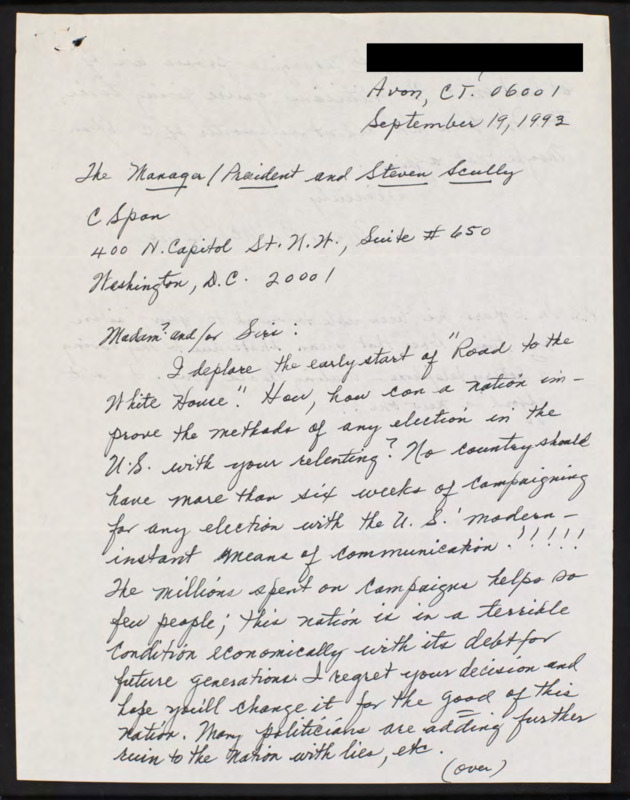 Avon, CT. 06001
September 19, 1993
The Manager/President and Steven Scully
C Span
400 N. Capitol St. N.W., Suite # 650
Washington, D.C. 20001
Madam? and/or Sirs:
I deplore the early start of "Road to the
White House". How, how can a nation im-
prove the methods of any election in the
U.S. with your relenting? No country should
have more than six weeks of campaigning
for any election with the U.S.' modern-
instant means of communication.'!!!!!
The millions spent on campaigns helps so
few people; this nation is in a terrible
condition economically with its debt for
future generations. I regret your decision and
hope you'll change it for the good of this
nation. Many politicians are adding further
ruin to the nation with lies, etc.
(over)